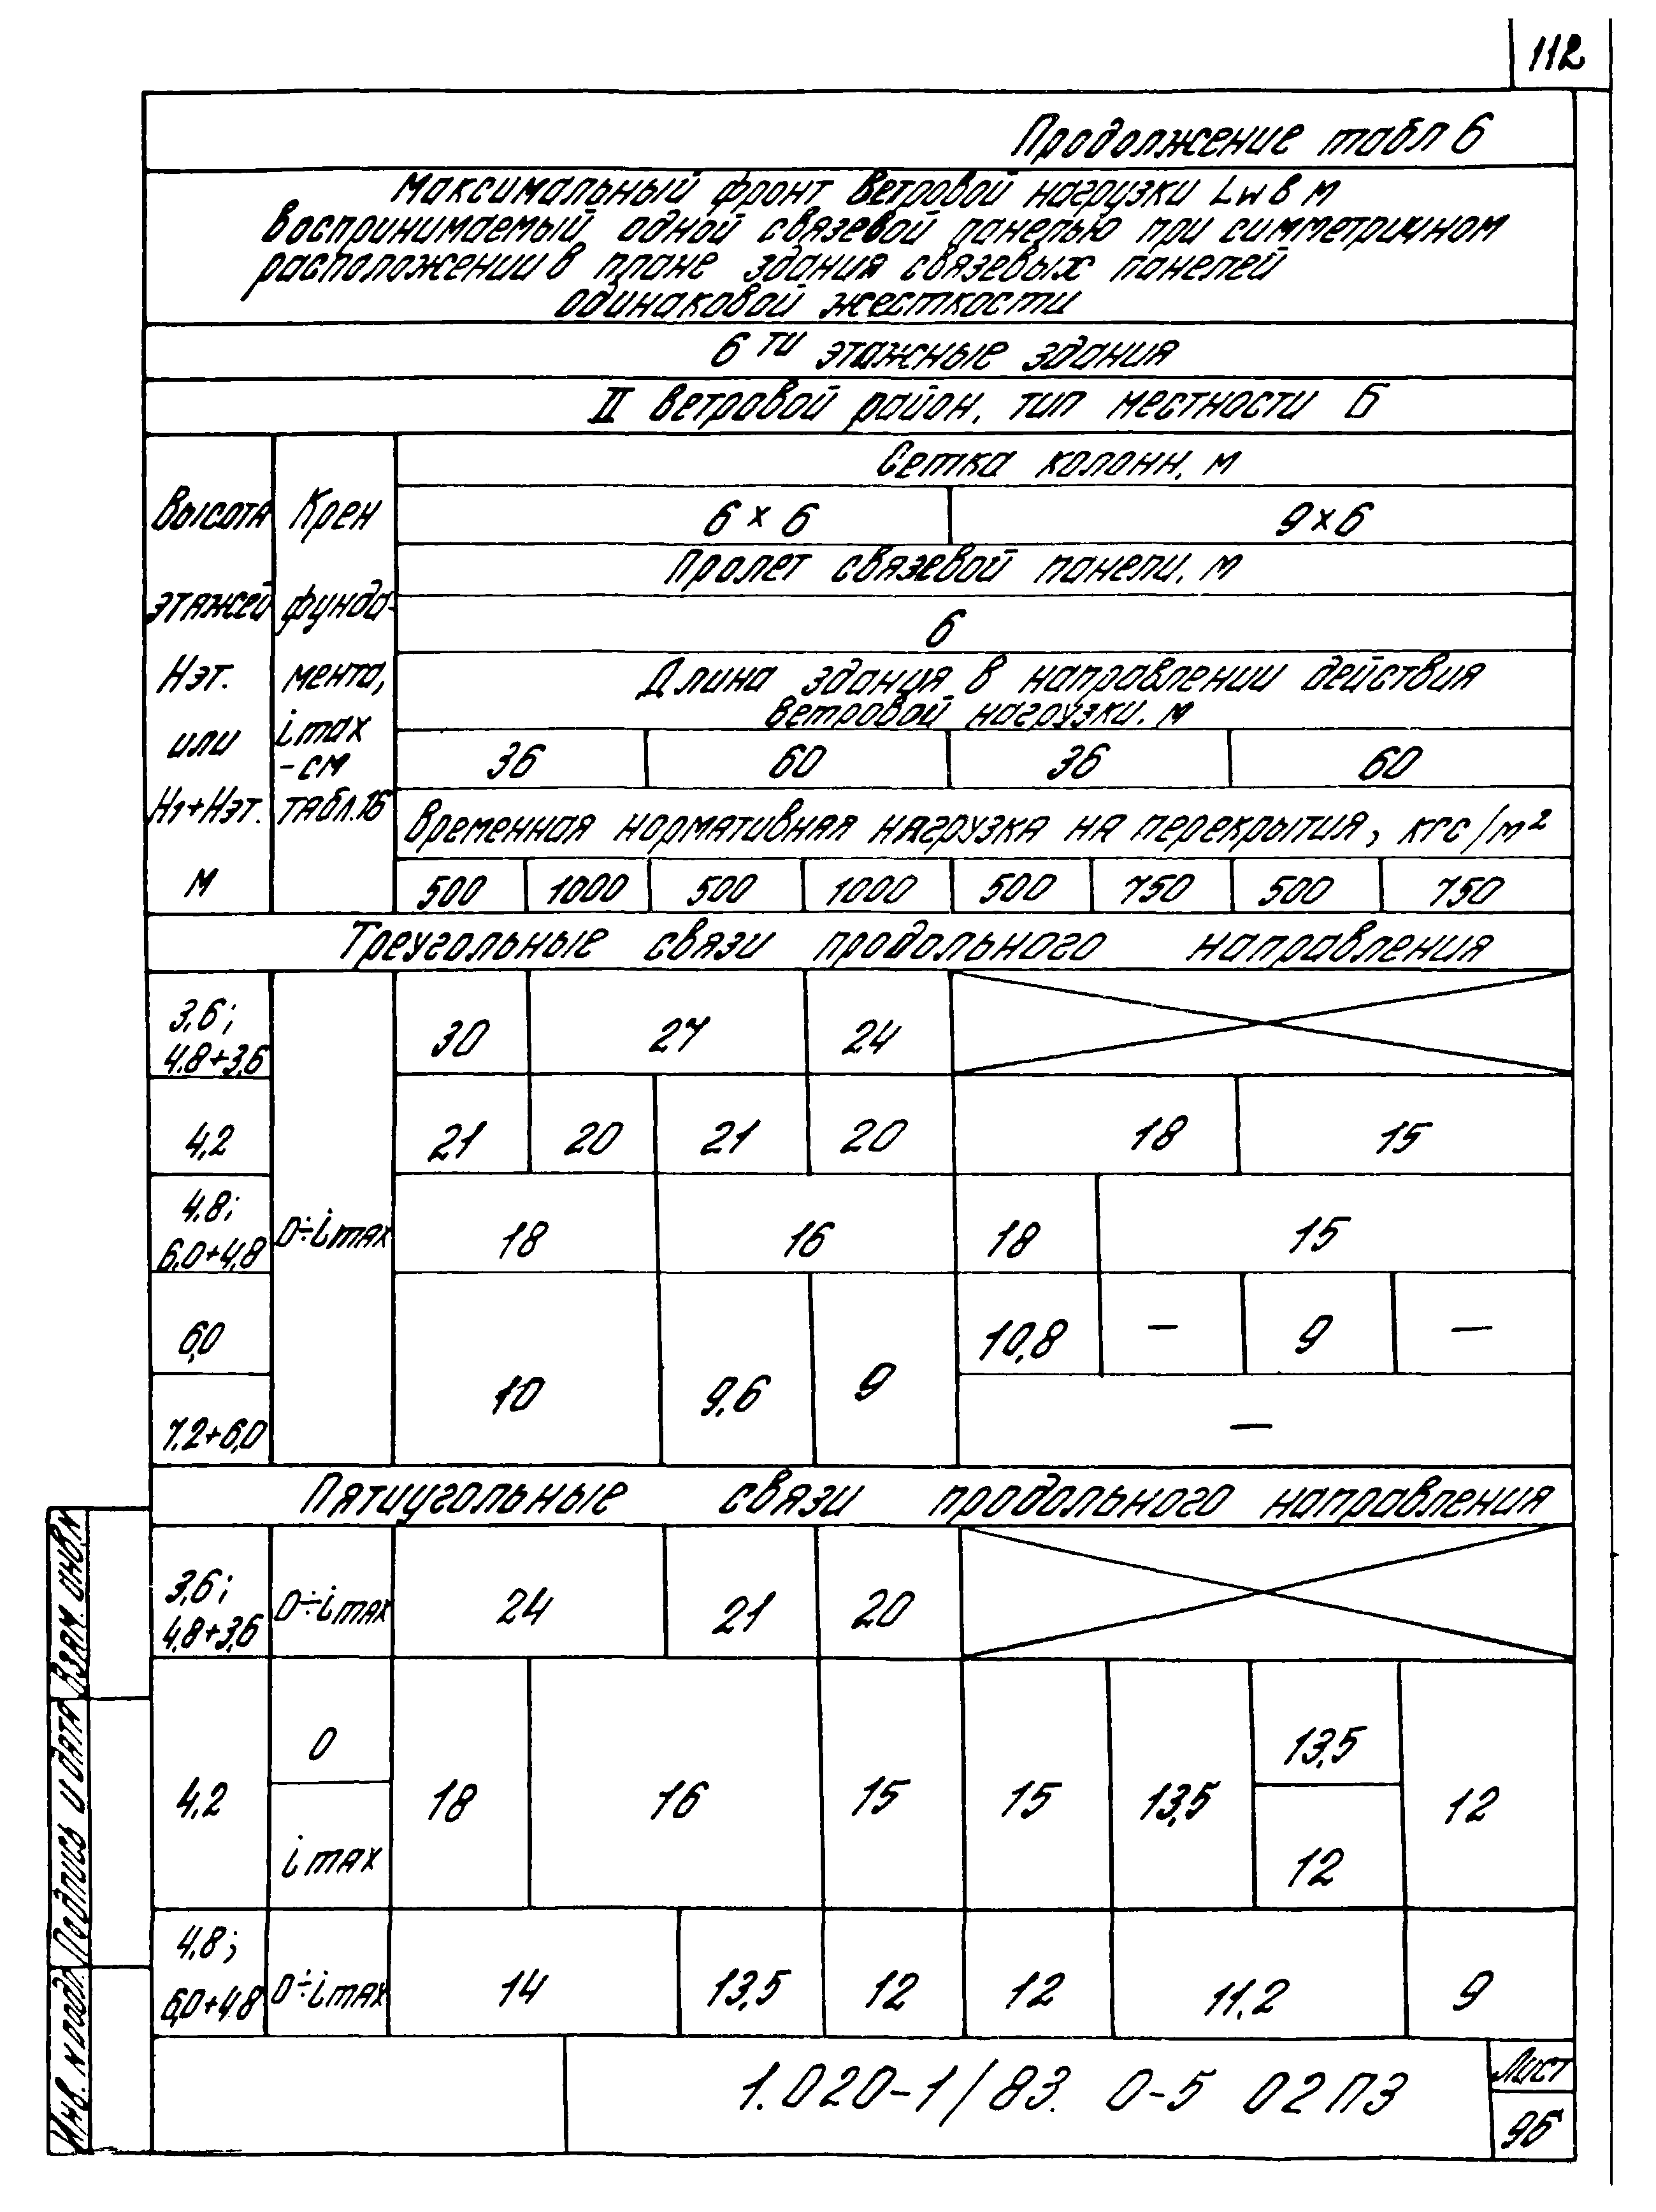 112
Продолжение табл 6
Максимальный фронт ветровой нагрузки Lw в м
воспринимаемый одной связевой панелью при симметричном
расположении в плане здания связевых панелей
одинаковой жесткости
6ти этажные здания
II ветровой район, тип местности Б
Высота этажей Нэт. или Н1+Нэт. м
Крен фунда- мента, imax -см табл.16
Сетка колонн, м
6 × 6 9×6
Пролет связевой панели, м
6
Длина здания в направлении действия
ветровой нагрузки, м
36 60 36 60
Временная нормативная нагрузка на перекрытия, кгс/м²
500 1000 500 1000 500 750 500 750
Треугольные связи продольного направления
3,6;
4.8+3,6
30 27 24
4,2 21 20 21 20 18 15
4.8;
6,0+4,8
0÷imax 18 16 18 15
6,0 10,8 — 9 —
10 9,6 9
7.2+6,0 —
Пятиугольные связи продольного направления
3,6;
4,8+3,6
0÷imax 24 21 20
4,2
0
imax
18 16 15 15 13,5
13,5
12
12
4.8;
6,0+4.8
0÷imax 14 13,5 12 12 11.2 9
1.020-1/83. 0-5 02ПЗ
Лист
96
Взам. инв.N
Подпись и дата
Инв. N подл.